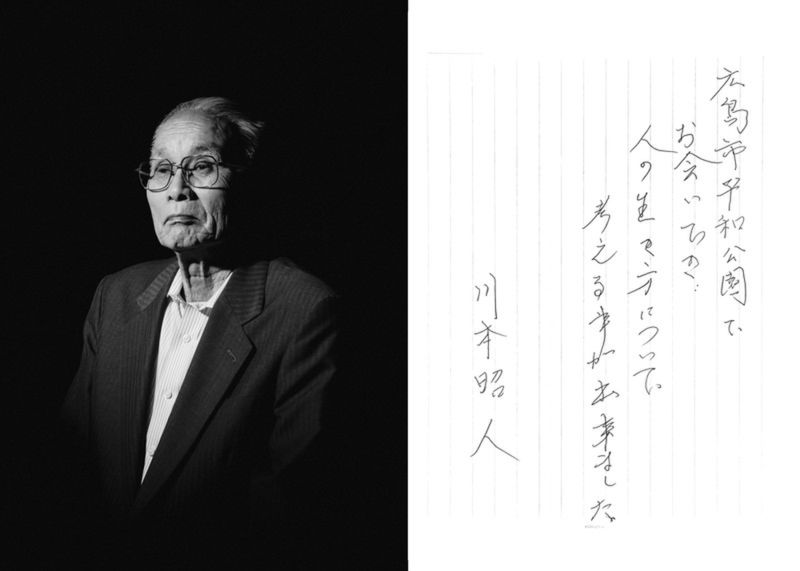 広島市平和公園で
お会いでき
人の生き方について
考える事が出来ました
川本昭人